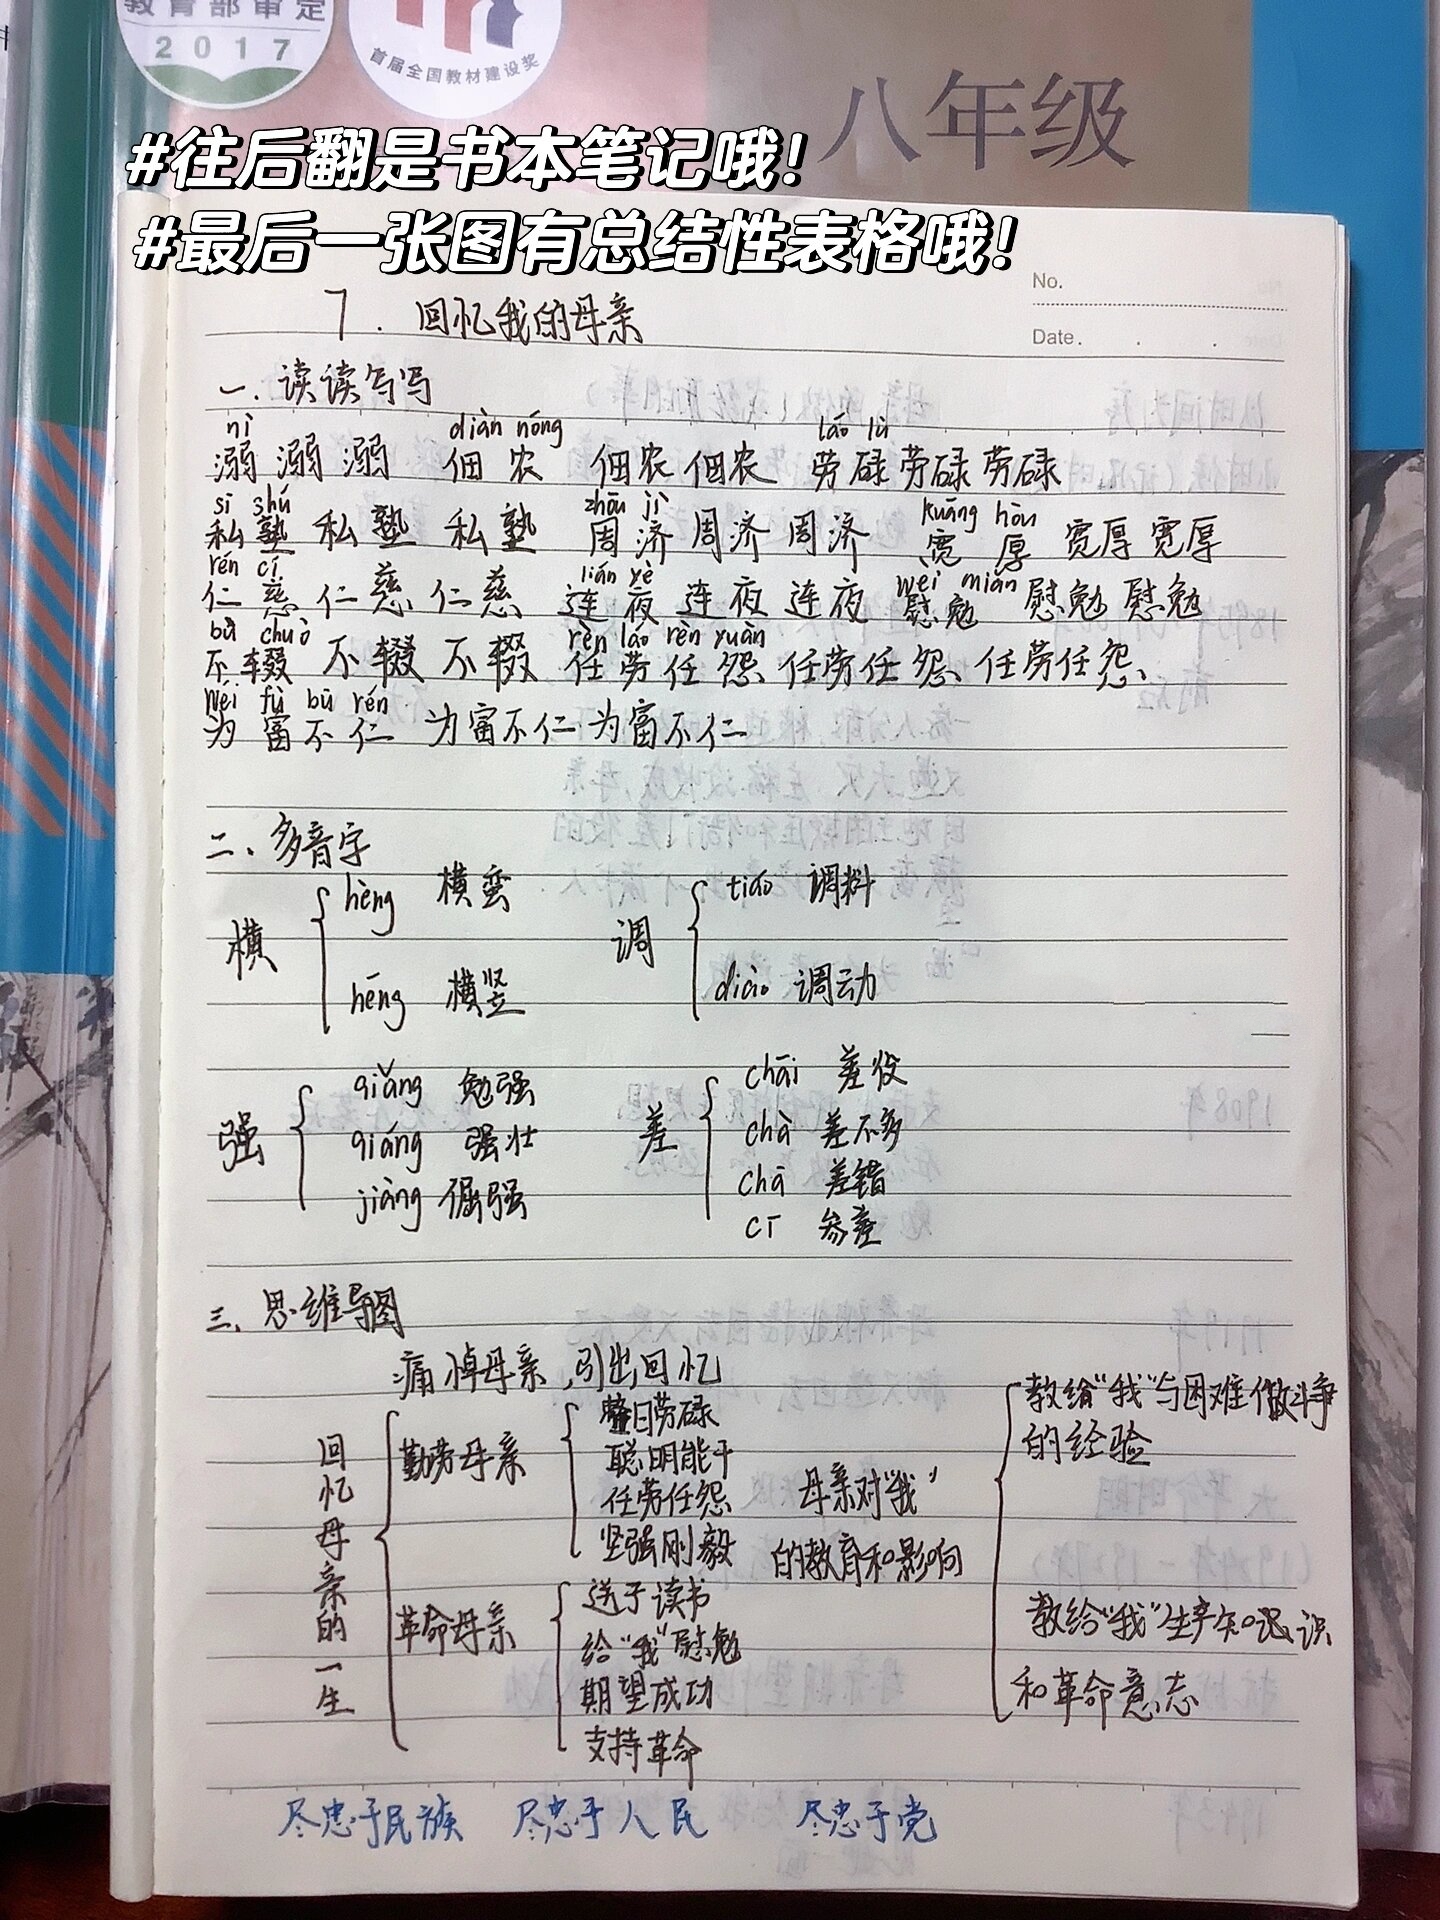 教育部审定
2017
首届全国教材建设奖
八年级
#往后翻是书本笔记哦!
#最后一张图有总结性表格哦!
No.
Date.
7. 回忆我的母亲
一.读读写写
nì diàn nóng láo lù
溺 溺 溺 佃农 佃农 佃农 劳碌 劳碌 劳碌
sī shú zhōu jì kuāng hòu
私塾 私塾 私塾 周济 周济 周济 宽厚 宽厚 宽厚
rén cí lián yè wèi miǎn
仁慈 仁慈 仁慈 连夜 连夜 连夜 慰勉 慰勉 慰勉
bù chuò rèn láo rèn yuàn
不辍 不辍 不辍 任劳任怨 任劳任怨、任劳任怨、
Wéi fù bū rén
为富不仁 为富不仁 为富不仁
二、多音字
横 hèng 横蛮
hēng 横竖
调 tiáo 调料
diào 调动
强 qiǎng 勉强
qiáng 强壮
jiàng 倔强
差 chāi 差役
chà 差不多
chā 差错
cī 参差
三、思维导图
回忆母亲的一生
痛悼母亲,引出回忆
勤劳母亲
整日劳碌
聪明能干
任劳任怨
坚强刚毅
革命母亲
送子读书
给“我”慰勉
期望成功
支持革命
母亲对“我”
的教育和影响
教给“我”与困难做斗争
的经验
教给“我”生产知识
和革命意志
尽忠于民族 尽忠于人民 尽忠于党